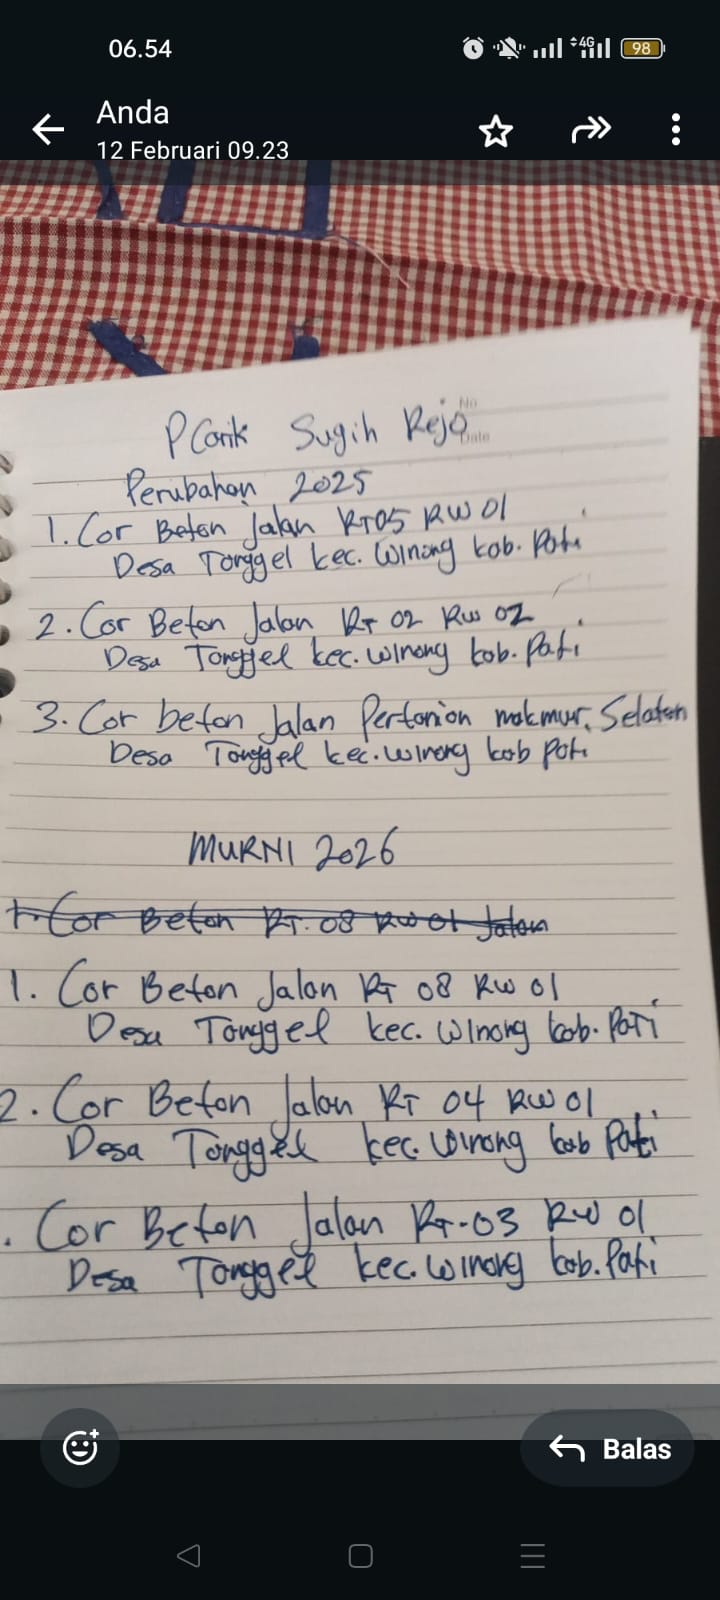 06.54
4G
98
Anda
12 Februari 09.23
No
Date
P Carik Sugih Rejo
Perubahan 2025
1. Cor Beton Jalan RT05 RW 01
Desa Tonggel kec. Winong kab. Pati
2. Cor Beton Jalan RT 02 RW 02
Desa Tonggel kec. Winong kob. Pati
3. Cor beton Jalan Pertanian makmur, Selatan
Desa Tonggel kec. Winong kab Pati
MURNI 2026
1. Cor Beton RT. 08 RW 01 Jalan
1. Cor Beton Jalan RT 08 RW 01
Desa Tonggel kec. Winong kob. PaTi
2. Cor Beton Jalan RT 04 RW 01
Desa Tonggel kec. Winong kob Pati
. Cor Beton Jalan RT-03 RW 01
Desa Tonggel kec. Winong kob. Pati
Balas